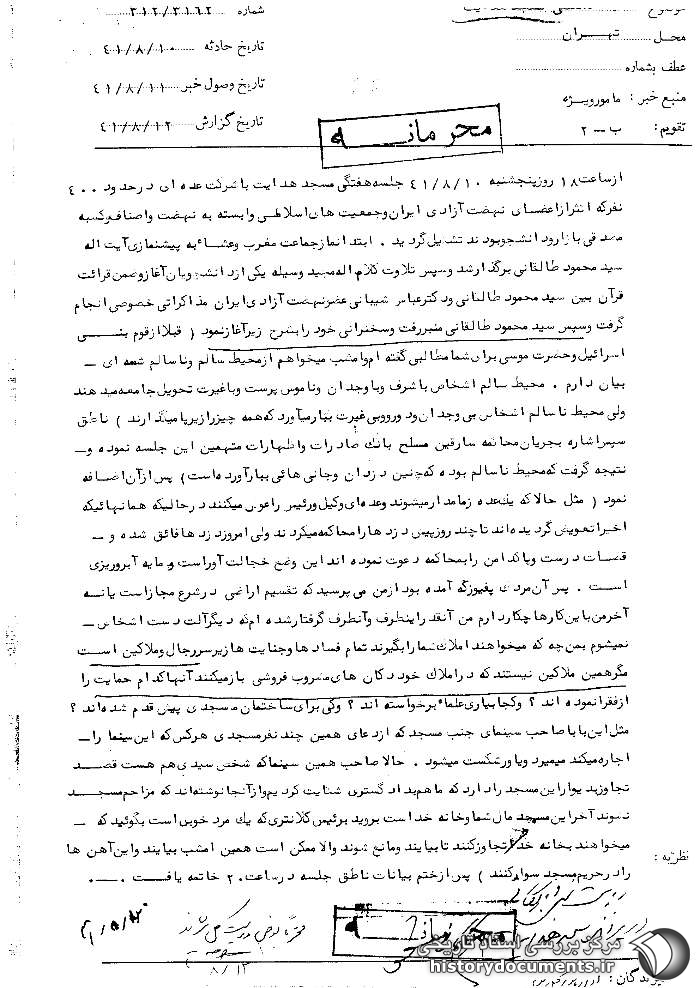 شماره ۳۱۲/۳۱۶۲
محل تهران
تاریخ حادثه ۴۱/۸/۱۰
عطف بشماره
تاریخ وصول خبر ۴۱/۸/۱۱
منبع خبر : مامور ویژه
تاریخ گزارش ۴۱/۸/۱۲
تقویم : ب - ۲
محرمانه
از ساعت ۱۸ روز پنجشنبه ۴۱/۸/۱۰ جلسه هفتگی مسجد هدایت با شرکت عده ای در حدود ۴۰۰
نفر که اکثرا از اعضای نهضت آزادی ایران و جمعیت های اسلامی وابسته به نهضت و اصناف و کسبه
مصدقی بازار و دانشجو بودند تشکیل گردید . ابتدا نماز جماعت مغرب و عشاء به پیشنمازی آیت اله
سید محمود طالقانی برگذار شد و سپس تلاوت کلام اله مجید وسیله یکی از دانشجویان آغاز و ضمن قرائت
قرآن بین سید محمود طالقانی و دکتر عباس شیبانی عضو نهضت آزادی ایران مذاکراتی خصوصی انجام
گرفت و سپس سید محمود طالقانی منبر رفت و سخنرانی خود را بشرح زیر آغاز نمود ( قبلا از قوم بنی
اسرائیل و حضرت موسی برای شما مطالبی گفته ام و امشب میخواهم از محیط سالم و ناسالم شمه ای -
بیان دارم . محیط سالم اشخاص با شرف و با وجدان و ناموس پرست و با غیرت تحویل جامعه میدهند
ولی محیط ناسالم اشخاص بی وجدان و دو رو و بی غیرت ببار میآورد که همه چیز را زیر پا میگذارند ) ناطق
سپس اشاره بجریان محاکمه سارقین مسلح بانک صادرات و اظهارات متهمین این جلسه نموده و-
نتیجه گرفت که محیط ناسالم بوده که چنین دزدان و جانی هائی ببار آورده است) پس از آن اضافه
نمود ( مثل حالا که یک عده زمامدار میشوند و عده ای وکیل و رئیس را عوض میکنند در حالیکه همانهائیکه
اخیرا تعویض گردیده اند تا چند روز پیش دزدها را محاکمه میکردند ولی امروز دزدها فائق شده و -
قضات درست و پاکدامن را بمحاکمه دعوت نموده اند این وضع خجالت آور است و مایه آبروریزی
است . پس آن مردی پفیوز که آمده بود از من می پرسید که تقسیم اراضی در شرع مجاز است یا نه
آخر من با این کارها چکار دارم من آنقدر اینطرف و آنطرف گرفتار شده ام که دیگر آلت دست اشخاص -
نمیشوم بمن چه که میخواهند املاک شما را بگیرند تمام فسادها و جنایت ها زیر سر رجال و ملاکین است
مگر همین ملاکین نیستند که در املاک خود دکان های مشروب فروشی باز میکنند آنها کدام حمایت را
از فقرا نموده اند ؟ و کجا بیاری علماء برخواسته اند ؟ و کی برای ساختمان مسجدی پیش قدم شده اند ؟
مثل این بابا صاحب سینمای جنب مسجد که از دعای همین چند نفر مسجدی هر کس که این سینما را -
اجاره میکند میمیرد و یا ورشکست میشود . حالا صاحب همین سینما که شخص سیدی هم هست قصد
تجاوز بدیوار این مسجد را دارد که ما هم بدادگستری شکایت کردیم و از آنجا نوشته اند که مزاحم مسجد
نشوند آخر این مسجد مال شما و خانه خدا است بروید برئیس کلانتری که یک مرد خوبی است بگوئید که -
میخواهند بخانه خدا تجاوز کنند تا بیایند و مانع شوند والا ممکن است همین امشب بیایند و این آهن ها
را در حریم مسجد سوار کنند ) پس از ختم بیانات ناطق جلسه در ساعت ۲۰ خاتمه یافت .
نظریه :
محرمانه
مرکز بررسی اسناد تاریخی
historydocuments.ir